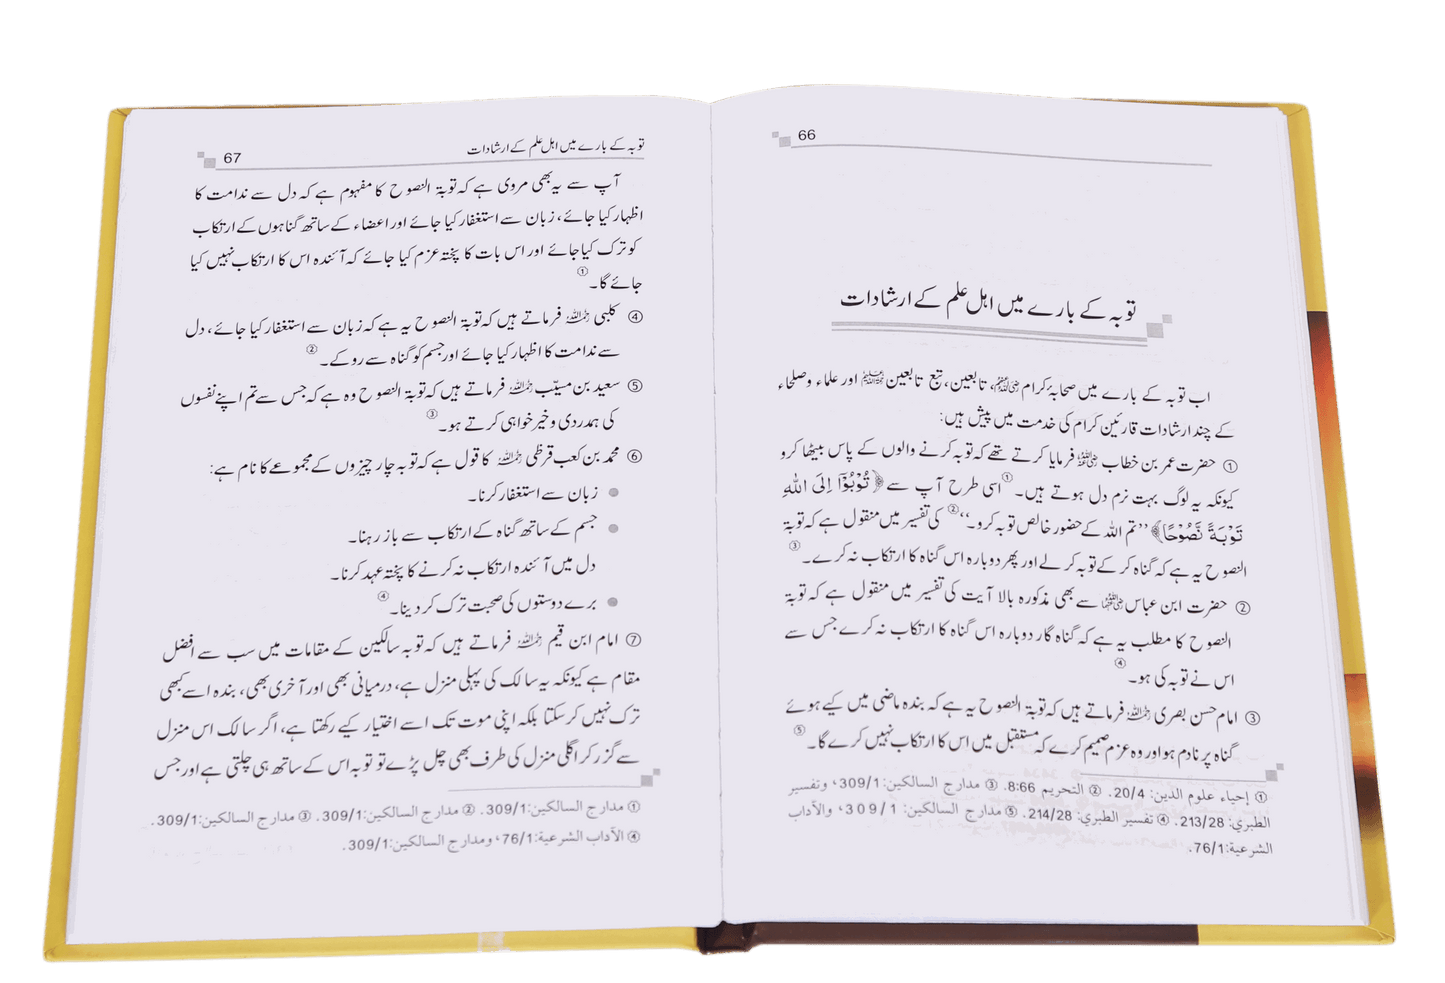 66
توبہ کے بارے میں اہل علم کے ارشادات
اب توبہ کے بارے میں صحابۂ کرام رضی اللہ عنہم، تابعین، تبع تابعین رحمہم اللہ اور علماء و صلحاء
کے چند ارشادات قارئین کرام کی خدمت میں پیش ہیں:
① حضرت عمر بن خطاب رضی اللہ عنہ فرمایا کرتے تھے کہ توبہ کرنے والوں کے پاس بیٹھا کرو
کیونکہ یہ لوگ بہت نرم دل ہوتے ہیں۔① اسی طرح آپ سے ﴿تُوْبُوْٓا اِلَى اللّٰهِ
تَوْبَةً نَّصُوْحًا﴾ ’’تم اللہ کے حضور خالص توبہ کرو۔‘‘② کی تفسیر میں منقول ہے کہ توبۃ
النصوح یہ ہے کہ گناہ کر کے توبہ کر لے اور پھر دوبارہ اس گناہ کا ارتکاب نہ کرے۔③
② حضرت ابن عباس رضی اللہ عنہما سے بھی مذکورہ بالا آیت کی تفسیر میں منقول ہے کہ توبۃ
النصوح کا مطلب یہ ہے کہ گناہ گار دوبارہ اس گناہ کا ارتکاب نہ کرے جس سے
اس نے توبہ کی ہو۔④
③ امام حسن بصری رحمہ اللہ فرماتے ہیں کہ توبۃ النصوح یہ ہے کہ بندہ ماضی میں کیے ہوئے
گناہ پر نادم ہو اور وہ عزم صمیم کرے کہ مستقبل میں اس کا ارتکاب نہیں کرے گا۔⑤
① إحياء علوم الدين: 20/4. ② التحريم 8:66. ③ مدارج السالكين: 309/1، وتفسير
الطبري: 213/28. ④ تفسير الطبري: 214/28. ⑤ مدارج السالكين: 309/1، والآداب
الشرعية: 76/1.
توبہ کے بارے میں اہل علم کے ارشادات 67
آپ سے یہ بھی مروی ہے کہ توبۃ النصوح کا مفہوم ہے کہ دل سے ندامت کا
اظہار کیا جائے، زبان سے استغفار کیا جائے اور اعضاء کے ساتھ گناہوں کے ارتکاب
کو ترک کیا جائے اور اس بات کا پختہ عزم کیا جائے کہ آئندہ اس کا ارتکاب نہیں کیا
جائے گا۔①
④ کلبی رحمہ اللہ فرماتے ہیں کہ توبۃ النصوح یہ ہے کہ زبان سے استغفار کیا جائے، دل
سے ندامت کا اظہار کیا جائے اور جسم کو گناہ سے روکے۔②
⑤ سعید بن مسیّب رحمہ اللہ فرماتے ہیں کہ توبۃ النصوح وہ ہے کہ جس سے تم اپنے نفسوں
کی ہمدردی و خیر خواہی کرتے ہو۔③
⑥ محمد بن کعب قرظی رحمہ اللہ کا قول ہے کہ توبہ چار چیزوں کے مجموعے کا نام ہے:
● زبان سے استغفار کرنا۔
● جسم کے ساتھ گناہ کے ارتکاب سے باز رہنا۔
دل میں آئندہ ارتکاب نہ کرنے کا پختہ عہد کرنا۔
● برے دوستوں کی صحبت ترک کر دینا۔④
⑦ امام ابن قیم رحمہ اللہ فرماتے ہیں کہ توبہ سالکین کے مقامات میں سب سے افضل
مقام ہے کیونکہ یہ سالک کی پہلی منزل ہے، درمیانی بھی اور آخری بھی، بندہ اسے کبھی
ترک نہیں کر سکتا بلکہ اپنی موت تک اسے اختیار کیے رکھتا ہے، اگر سالک اس منزل
سے گزر کر اگلی منزل کی طرف بھی چل پڑے تو توبہ اس کے ساتھ ہی چلتی ہے اور جس
① مدارج السالكين: 309/1. ② مدارج السالكين: 309/1. ③ مدارج السالكين: 309/1.
④ الآداب الشرعية: 76/1، ومدارج السالكين: 309/1.